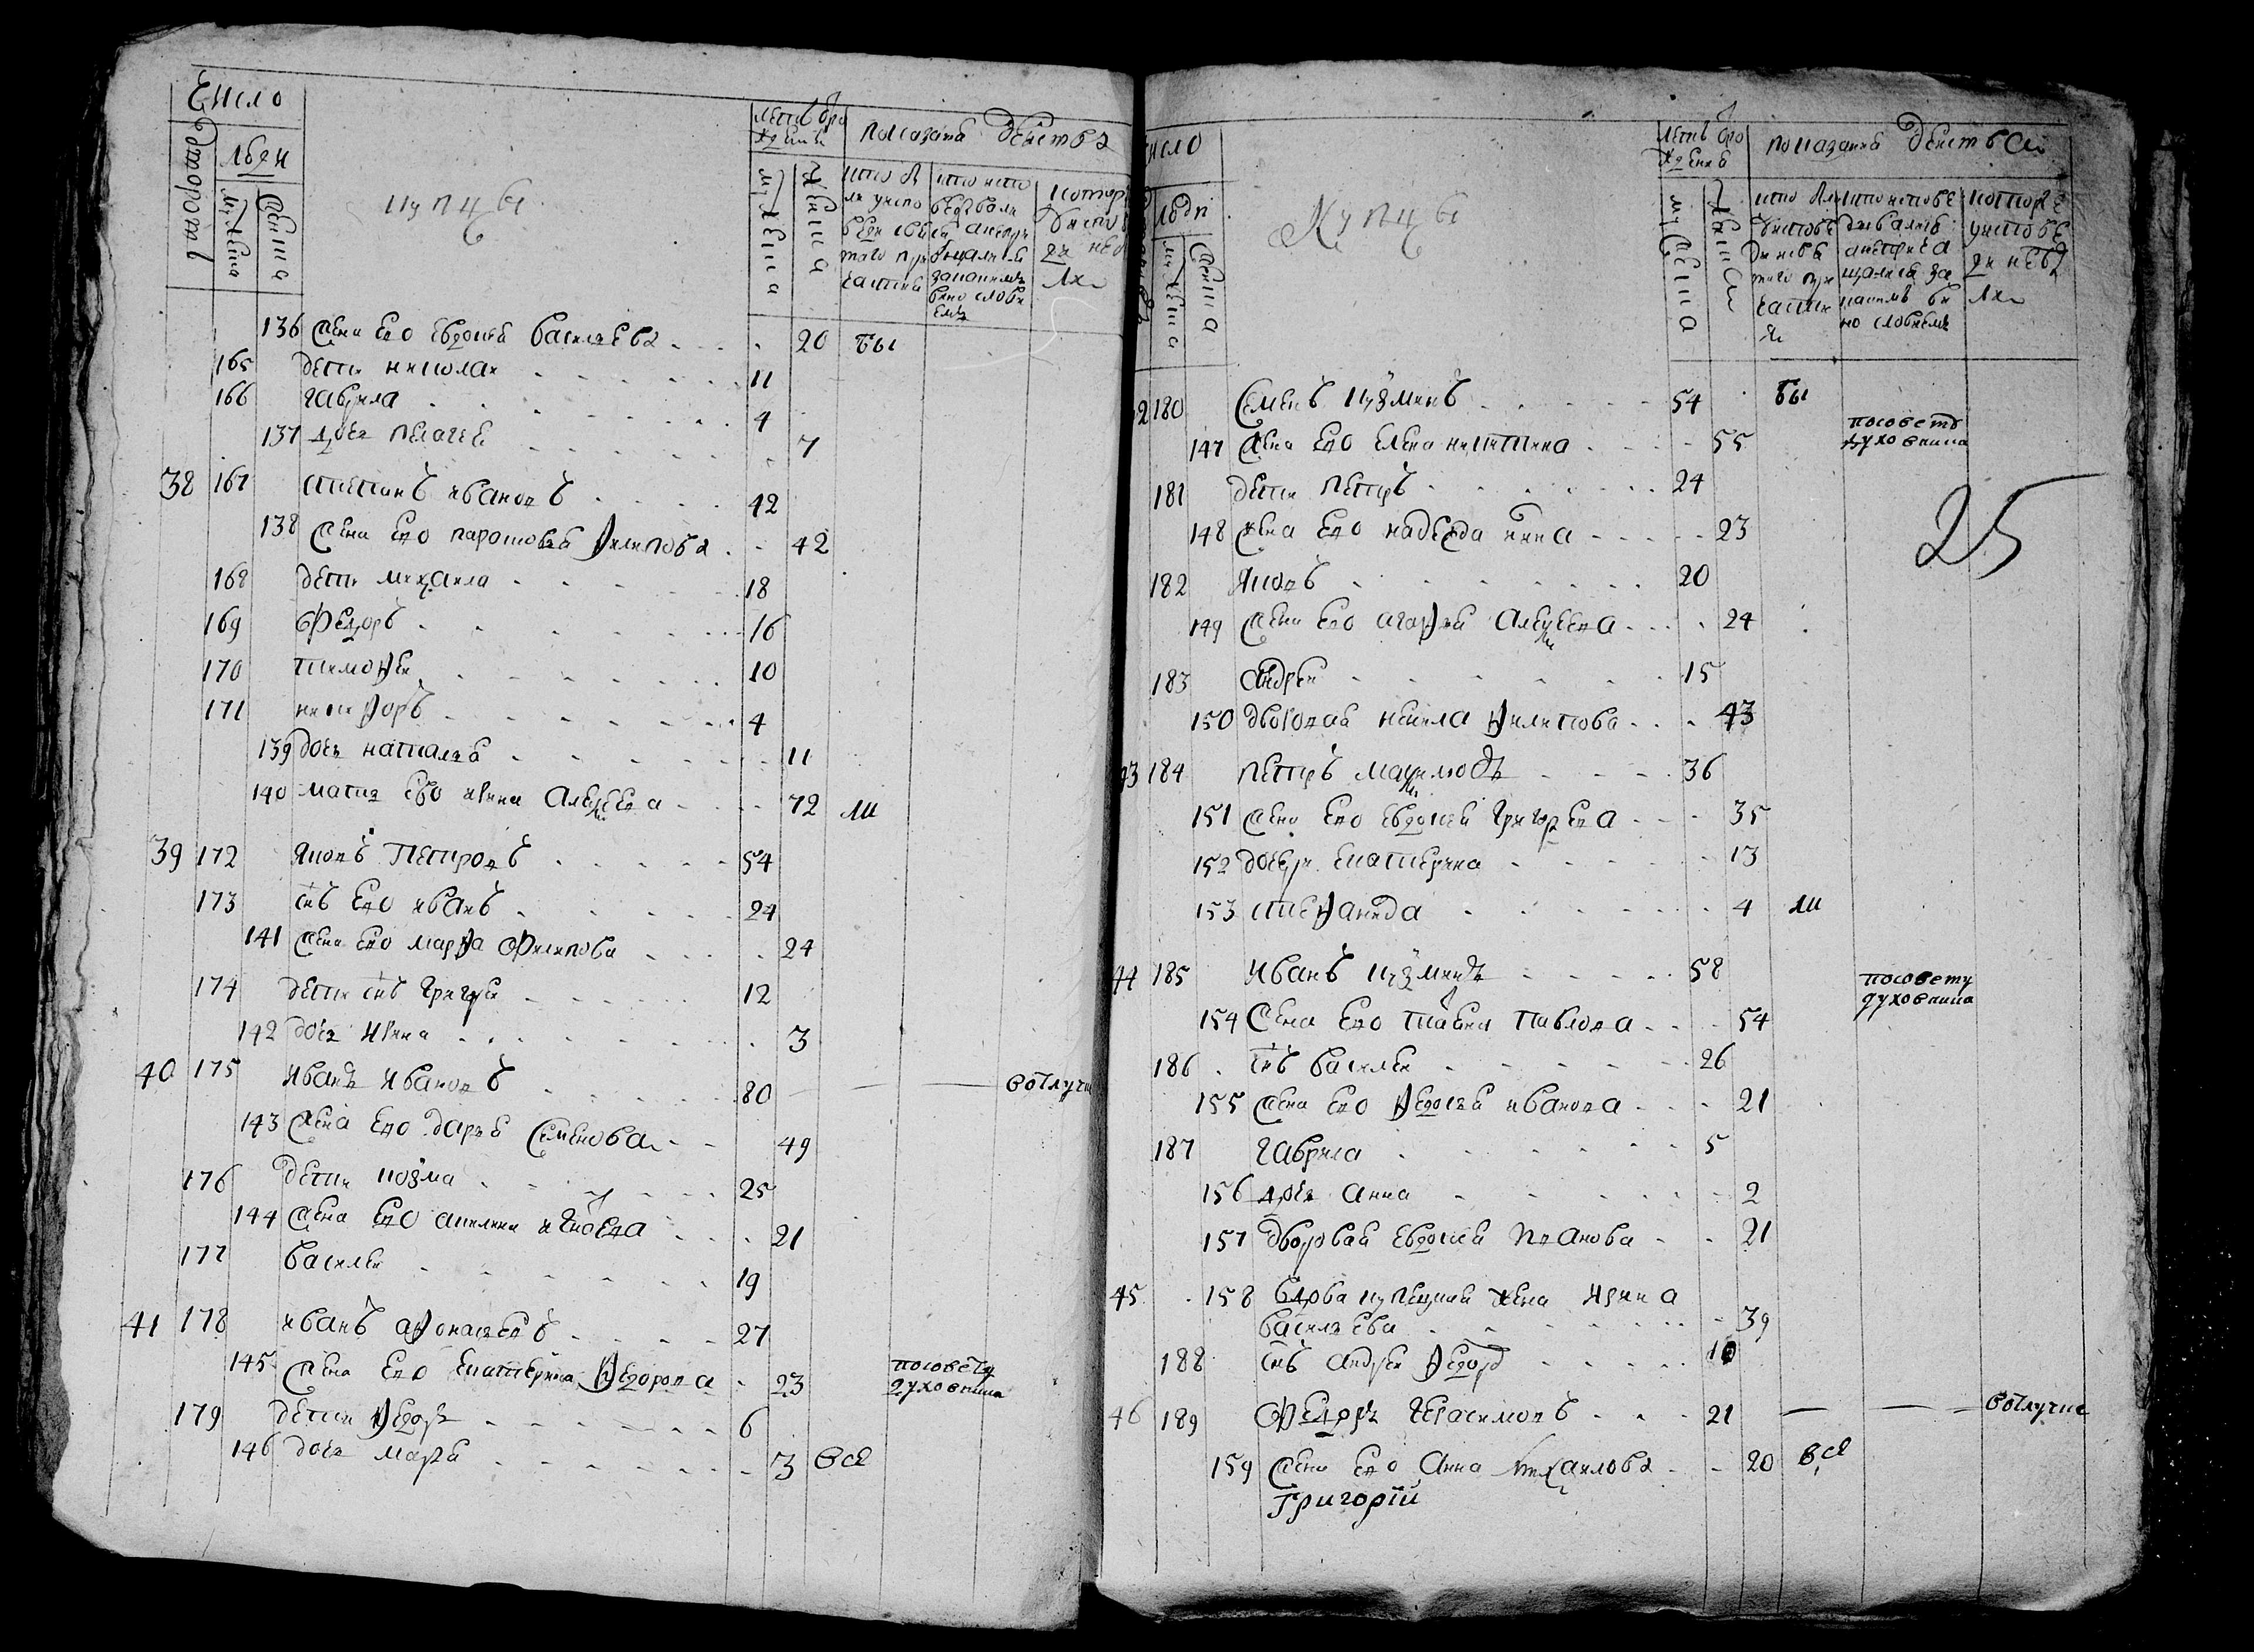 Число
Дворовъ
Людей
мужеска
женска
купцы
Летъ от рождения
мужеска
женска
Показание действа
кто были у исповеди и святаго причастия
кто исповедывались а не причащались и за какимъ винословиемъ
которые у исповеди не были
136 жена ево евдокия василева 20 бы
165 дети николаи 11
166 гаврила 4
137 дочь пелагея 7
38 167 степанъ ивановъ 42
138 жена ево парасковья филипова 42
168 дети михаила 18
169 федоръ 16
170 тимофеи 10
171 никифоръ 4
139 дочь наталья 11
140 матъ ево ирина алексеева 72 ли
39 172 яковъ петровъ 54
173 снъ ево иванъ 24
141 жена ево марфа филипова 24
174 дети снъ григореи 12
142 дочь ирина 3
40 175 иванъ ивановъ 80 вотлучке
143 жена ево дарья семенова 49
176 дети козма 25
144 жена ево акилина 21
177 василеи 19
41 178 иванъ афонасьевъ 27
145 жена ево екатерина федорова 23 посовету духовника
179 дети федоръ 6
146 дочь маръя 3 вся
число
людеи
мужеска
женска
Купцы
Летъ от рождения
мужеска
женска
показания действа
кто были у исповеди и святаго причастия
кто исповедывались а не причащались и за какимъ винословиемъ
которые у исповеди не были
42 180 Семенъ кузминъ 54 бы
147 жена ево елена никитина 55 посовету духовника
181 дети петръ 24
25
148 жена ево надежда 23
182 яковъ 20
149 жена ево агафья алексеева 24
183 андреи 15
150 дворовая некила филипова 43
43 184 петръ максимовъ 36
151 жена ево евдокия григорьева 35
152 дочери екатерина 13
153 стефанида 4 ли
44 185 иванъ кузминъ 58 посовету духовника
154 жена ево павлова 54
186 снъ василеи 26
155 жена ево федосья иванова 21
187 гаврила 5
156 дочь анна 2
157 дворовая евдокия иванова 21
45 158 вдова купецкая жена ирина
василъева 39
188 снъ андреи федоров 10
46 189 федоръ герасимовъ 21 вотлучке
159 жена ево анна михаилова 20 вся
Григорїй